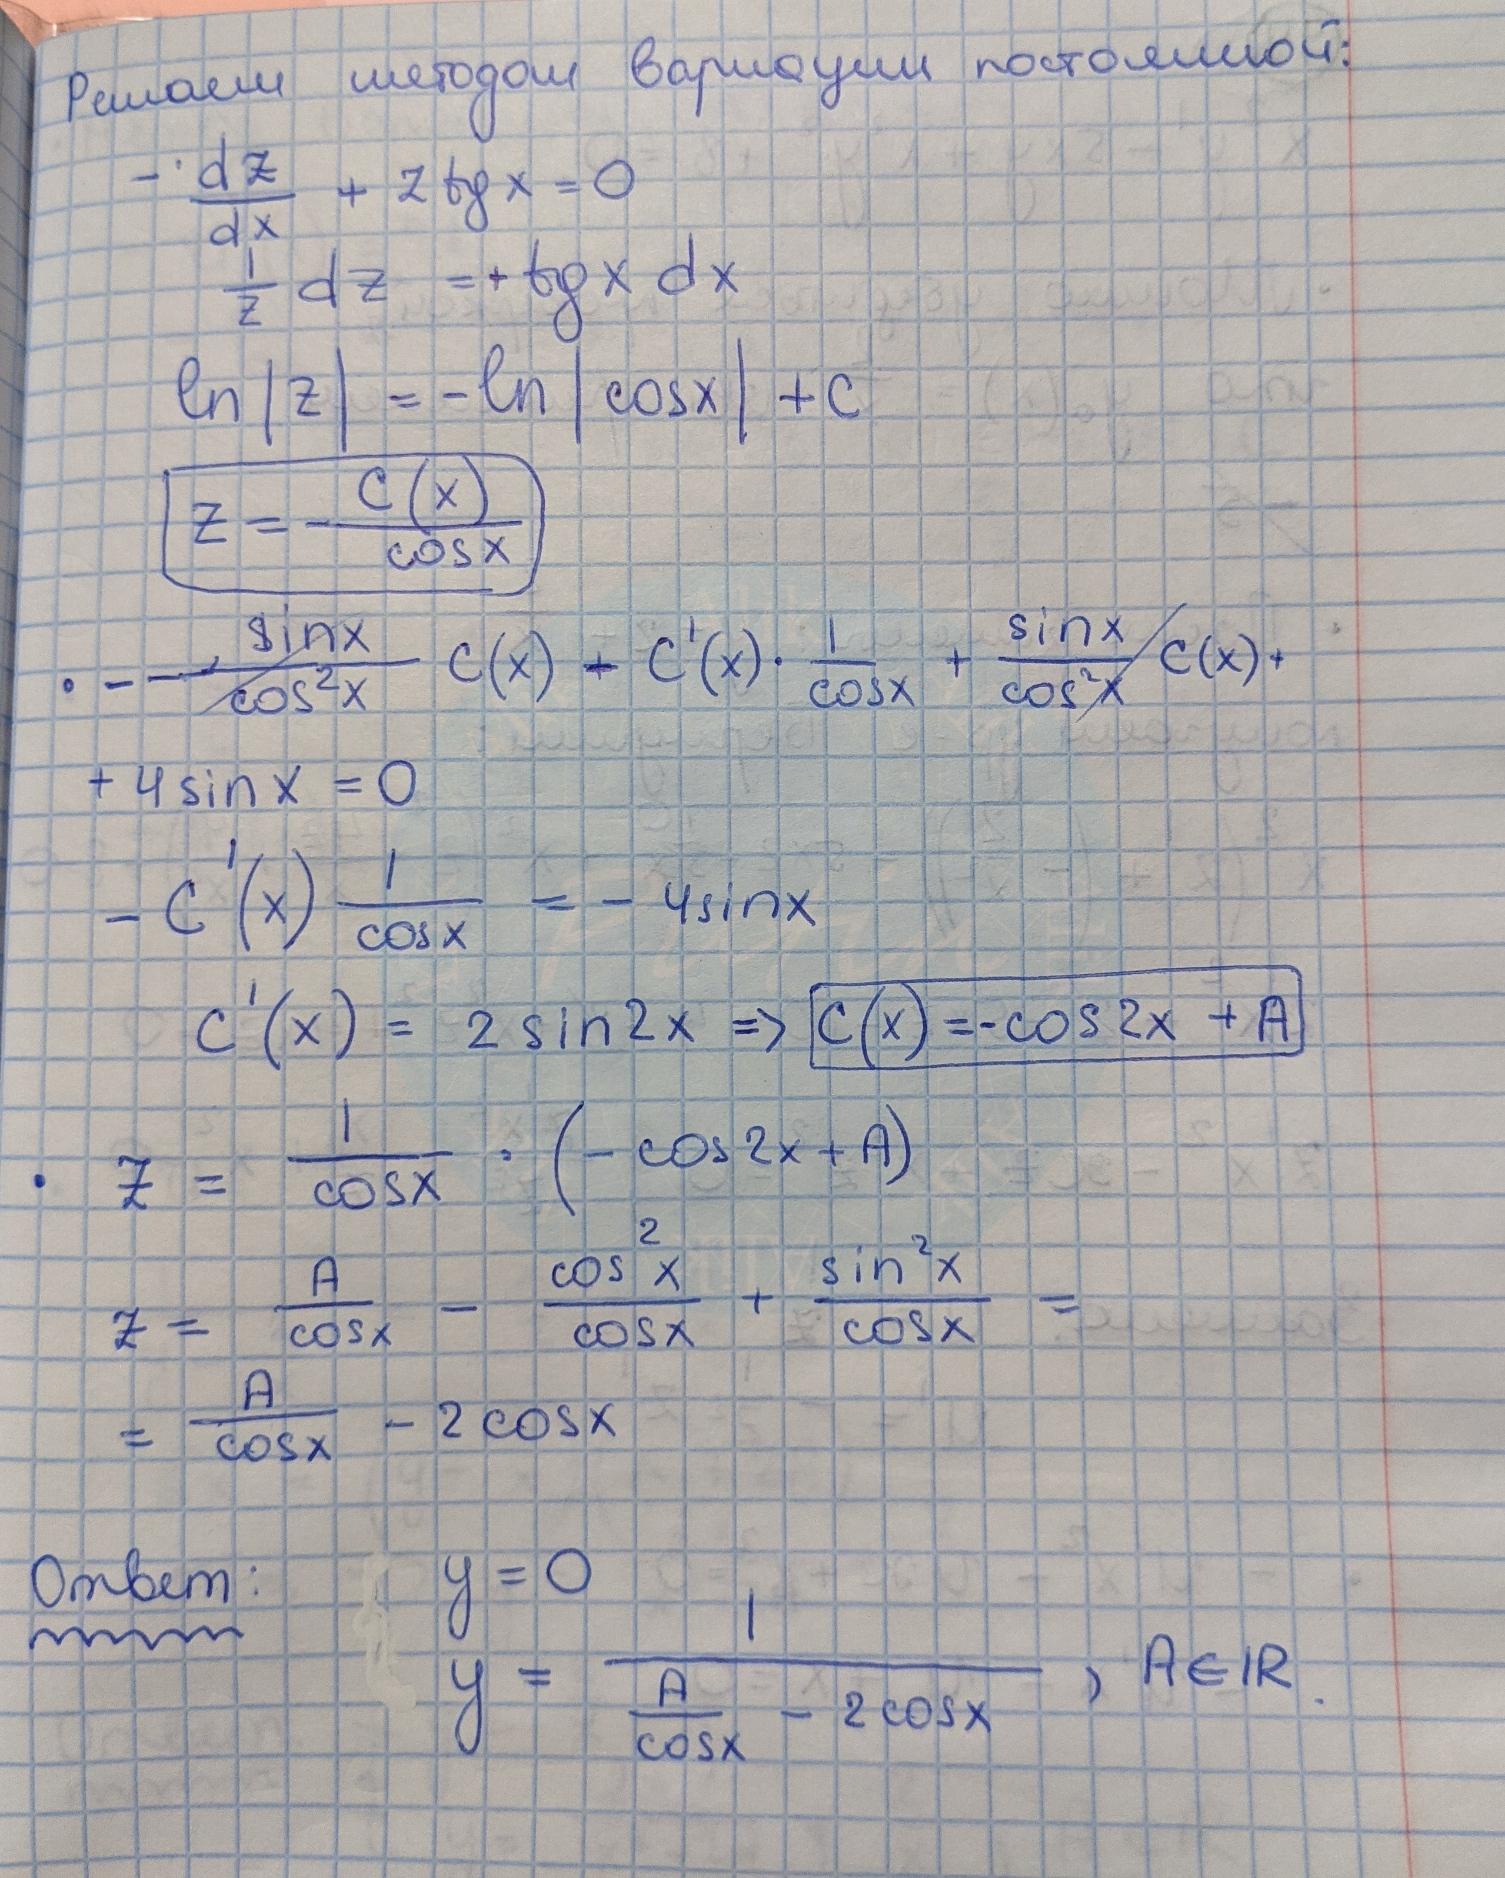 Решаем методом вариации постоянной:
- dz/dx + z tg x = 0
1/z dz = + tg x dx
ln|z| = -ln|cosx| + C
z = - C(x)/cosx
· - - sinx/cos²x C(x) - C'(x) · 1/cosx + sinx/cos²x C(x) +
+ 4 sinx = 0
- C'(x) 1/cosx = - 4sinx
C'(x) = 2 sin2x => C(x) = -cos2x + A
· z = 1/cosx · (- cos2x + A)
z = A/cosx - cos²x/cosx + sin²x/cosx =
= A/cosx - 2cosx
Ответ: y = 0
y = 1/(A/cosx - 2cosx), A∈ℝ.